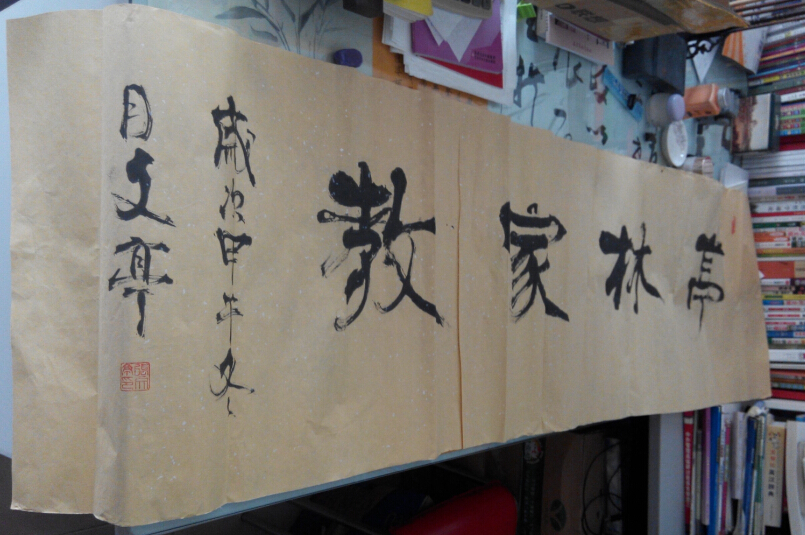 亭林家教
歲次甲午冬
月文亭